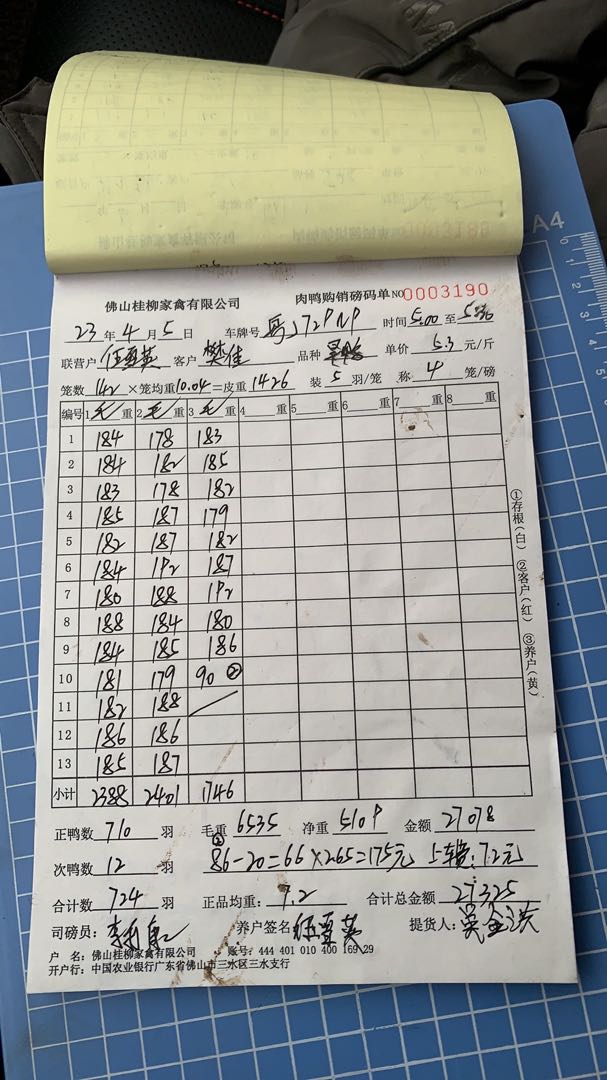 佛山桂柳家禽有限公司 肉鸭购销磅码单 NO 0003190
23 年 4 月 5 日 车牌号 时间 5:00 至
联营户 任雪英 客户 樊佳 品种 单价 5.3 元/斤
笼数 142 ×笼均重 10.04 =皮重 1426 装 5 羽/笼 称 4 笼/磅
编号 1 毛 重 2 毛 重 3 毛 重 4 重 5 重 6 重 7 重 8 重
1 184 178 183
2 184 182 185
3 183 178 182
4 185 187 179
5 182 187 182
6 184 192 187
7 180 188 192
8 188 184 180
9 184 185 186
10 181 179 90 ②
11 182 188
12 186 186
13 185 187
小计 2388 2401 1746
①存根(白) ②客户(红) ③养户(黄)
正鸭数 710 羽 毛重 6535 净重 5109 金额 27078
次鸭数 12 羽 ② 86-20=66×265=175元 上车费:72元
合计数 724 羽 正品均重: 7.2 合计总金额 27325
司磅员: 养户签名: 任雪英 提货人:
户 名: 佛山桂柳家禽有限公司 账号: 444 401 010 400 169 29
开户行: 中国农业银行广东省佛山市三水区三水支行
A4